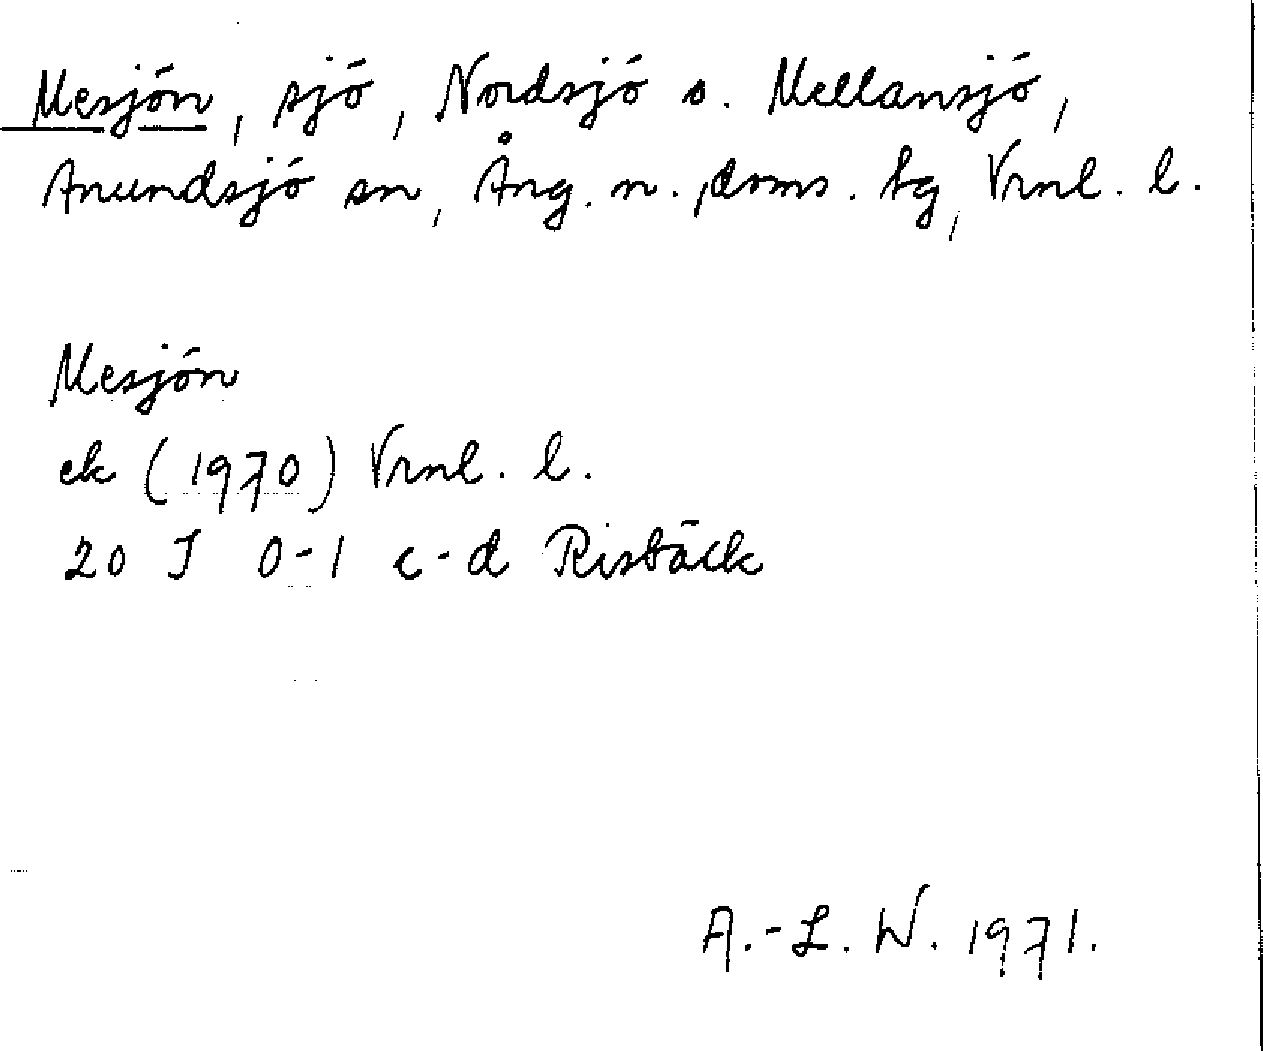 Mesjön, sjö, Nordsjö o. Mellansjö,
Anundsjö sn, Ång. n. doms. tg, Vrnl. l.
Mesjön
ek (1970) Vrnl. l.
20 J 0-1 c-d Risbäck
A.-L. W. 1971.